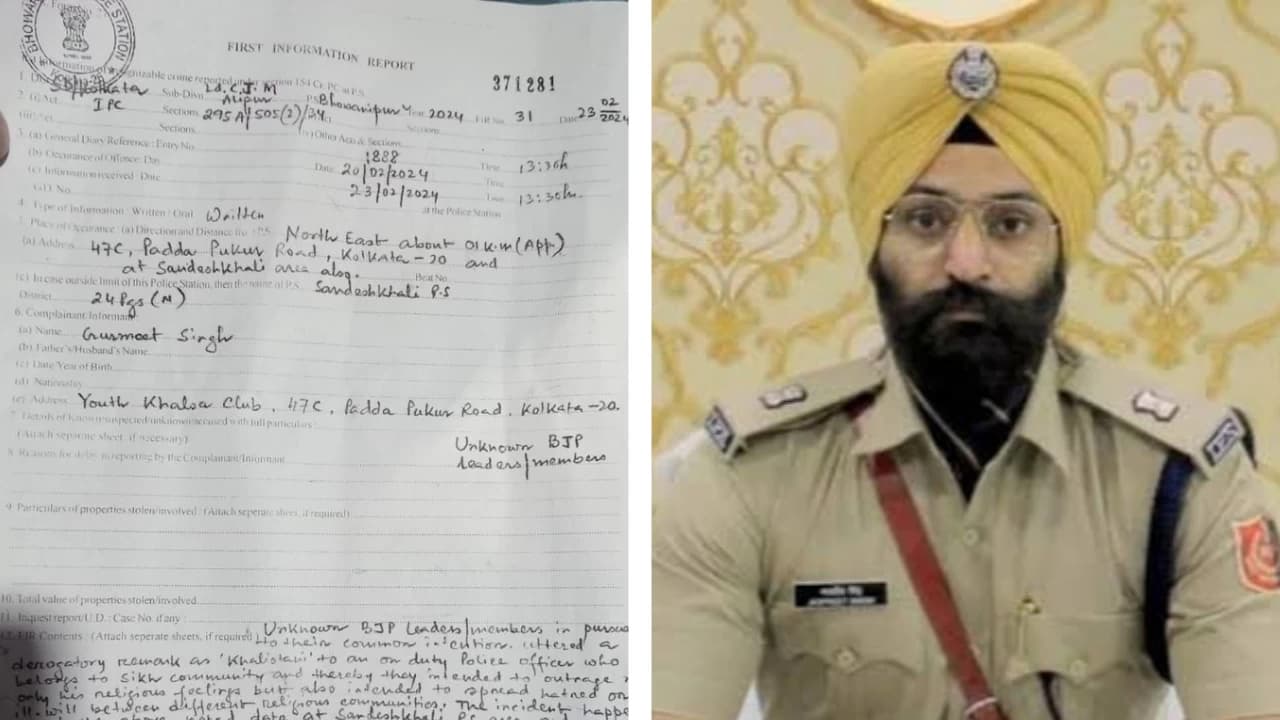 BHOWANIPUR POLICE STATION
FIRST INFORMATION REPORT
371281
cognizable crime reported under section 154 Cr. P.C. at P.S.
1. Dist. Kolkata Sub-Divn. Ld. C.J.M Alipur P.S. Bhowanipur Year 2024 FIR No. 31 Date 23 02 2024
2. (i) Act IPC Sections 295A/505(2)/34
Sections (iv) Other Acts & Sections
3. (a) General Diary Reference : Entry No. 1888 Time 13:30h
(b) Occurance of Offence: Day Date 20/02/2024 Time
(c) Information received : Date 23/02/2024 Time 13:30h.
at the Police Station
4. Type of Information : Written / Oral Written
5. Place of Occurance : (a) Direction and Distance from P.S. North East about 01 K.m (App.)
(b) Address 47C, Padda Pukur Road, Kolkata-20 and
at Sandeshkhali area also. Beat No.
(c) In case outside limit of this Police Station, then the name of P.S. Sandeshkhali P.S
District 24 Pgs (N)
6. Complainant/Informant
(a) Name Gurmeet Singh
(b) Father's/Husband's Name
(c) Date/Year of Birth
(d) Nationality
(e) Address Youth Khalsa Club, 47C, Padda Pukur Road, Kolkata-20.
7. Details of known/suspected/unknown accused with full particulars :
(Attach seperate sheet, if necessary) Unknown BJP
Leaders/members
8. Reasons for delay in reporting by the Complainant/Informant
9. Particulars of properties stolen/involved : (Attach seperate sheet, if required)
10. Total value of properties stolen/involved
11. Inquest report/U.D. : Case No. if any :
12. FIR Contents : (Attach seperate sheets, if required) Unknown BJP Leaders/members in
to their common intention uttered a
derogatory remark as 'Khalistani' to an on duty Police officer who
belongs to Sikh community and thereby they intended to outrage
only his religious feelings but also intended to spread hatred or
ill will between different religious communities. The incident
date at Sandeshkhali P.S area